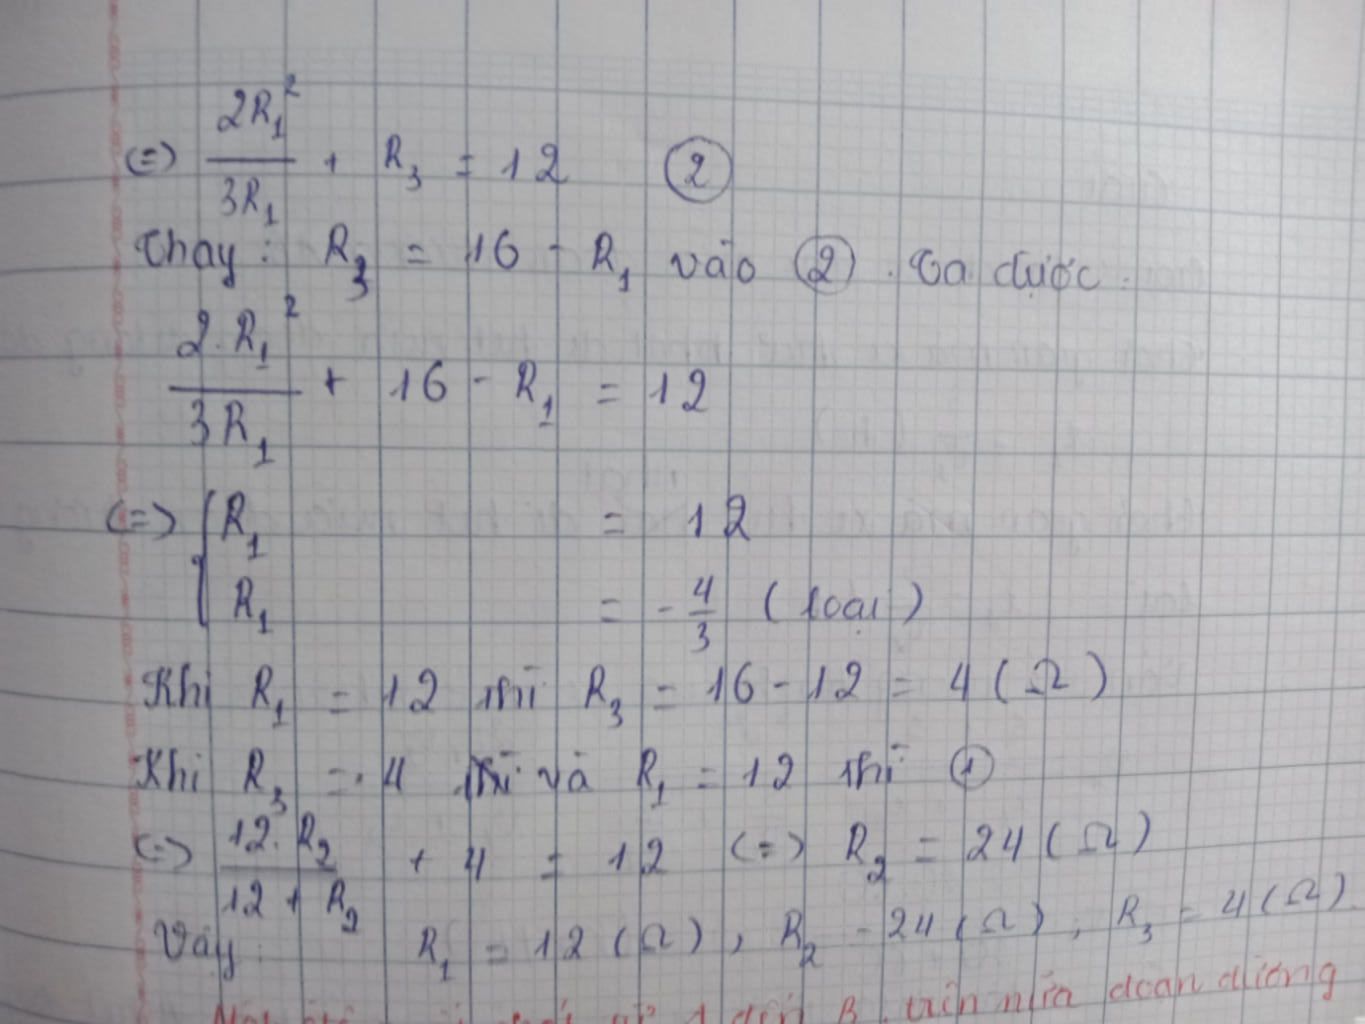 (=) 2R₁² / 3R₁ + R₃ = 12 (2)
Thay : R₃ = 16 - R₁ vào (2). Ta được :
2.R₁² / 3R₁ + 16 - R₁ = 12
(=) [ R₁ = 12
R₁ = - 4/3 (loại)
Khi R₁ = 12 thì R₃ = 16 - 12 = 4 (Ω)
Khi R₃ = 4 thì và R₁ = 12 thì (1)
(=) 12.R₂ / 12 + R₂ + 4 = 12 (=) R₂ = 24 (Ω)
Vậy : R₁ = 12 (Ω), R₂ = 24 (Ω), R₃ = 4 (Ω)
đến B. trên nửa đoạn đường